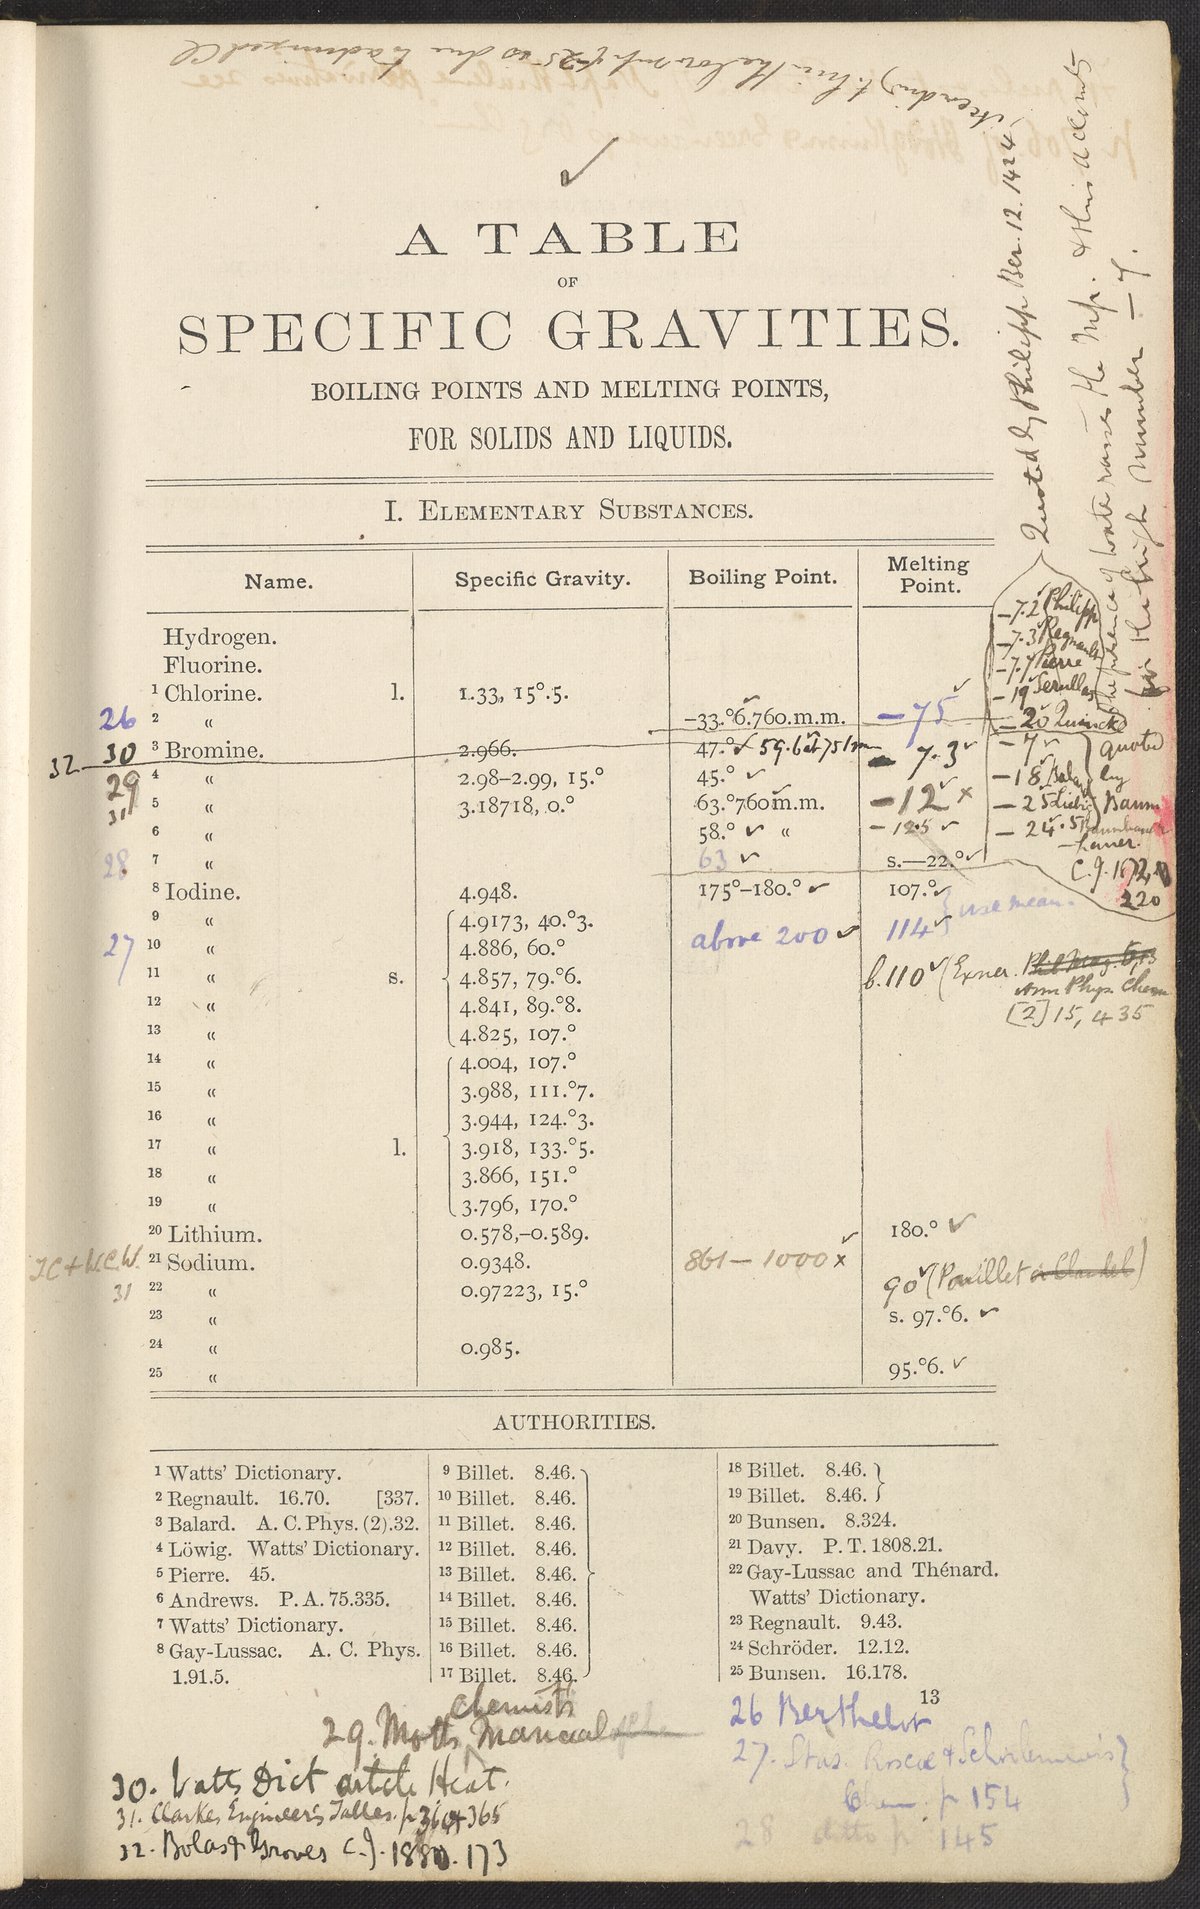 A TABLE
OF
SPECIFIC GRAVITIES.
BOILING POINTS AND MELTING POINTS,
FOR SOLIDS AND LIQUIDS.
I. Elementary Substances.
Name. Specific Gravity. Boiling Point. Melting Point.
Hydrogen.
Fluorine.
1 Chlorine. l. 1.33, 15°.5.
26 2 “ –33.°6.760.m.m. –75
32 30 3 Bromine. 2.966. 47.° 59.6 at 751 mm –7.3
29 4 “ 2.98–2.99, 15.° 45.°
31 5 “ 3.18718, 0.° 63.°760m.m. –12 x
6 “ 58.° “ –12.5
28 7 “ 63 s.—22.°
8 Iodine. 4.948. 175°–180.° 107.°
9 “ 4.9173, 40.°3. use mean.
27 10 “ 4.886, 60.° above 200 114
11 “ s. 4.857, 79.°6. b. 110 (Exner. Phil Mag. 5,
12 “ 4.841, 89.°8. Ann Phys. Chem
13 “ 4.825, 107.° [2] 15, 435
14 “ 4.004, 107.°
15 “ 3.988, 111.°7.
16 “ 3.944, 124.°3.
17 “ l. 3.918, 133.°5.
18 “ 3.866, 151.°
19 “ 3.796, 170.°
20 Lithium. 0.578,–0.589. 180.°
21 Sodium. 0.9348. 861 – 1000 x
31 22 “ 0.97223, 15.° 90 (Pouillet
23 “ s. 97.°6.
24 “ 0.985.
25 “ 95.°6.
–7.2 Philipp
–7.3 Regnault
–7.7 Pierre
–19 Serullas
–20 Quincke
–7 quoted
–18 Balard by
–25 Liebig Baum
–24.5 Baumhauer
–hauer.
C.J. 1872,
220
Quoted by Philipp Ber. 12. 1424,
the presence of water raises the mp. & this accounts
for the high number –7.
AUTHORITIES.
1 Watts’ Dictionary.
2 Regnault. 16.70. [337.
3 Balard. A. C. Phys. (2).32.
4 Löwig. Watts’ Dictionary.
5 Pierre. 45.
6 Andrews. P. A. 75.335.
7 Watts’ Dictionary.
8 Gay-Lussac. A. C. Phys.
1.91.5.
9 Billet. 8.46.
10 Billet. 8.46.
11 Billet. 8.46.
12 Billet. 8.46.
13 Billet. 8.46.
14 Billet. 8.46.
15 Billet. 8.46.
16 Billet. 8.46.
17 Billet. 8.46.
18 Billet. 8.46.
19 Billet. 8.46.
20 Bunsen. 8.324.
21 Davy. P. T. 1808.21.
22 Gay-Lussac and Thénard.
Watts’ Dictionary.
23 Regnault. 9.43.
24 Schröder. 12.12.
25 Bunsen. 16.178.
13
26 Berthelot
27. Stas. Roscoe & Schorlemmer's
Chem. p 154
28 ditto p. 145
chemists
29. Motts Manual
30. Watts Dict article Heat.
31. Clarkes Engineer's Tables. p 364 & 365
32. Bolas & Groves C.J. 1880. 173